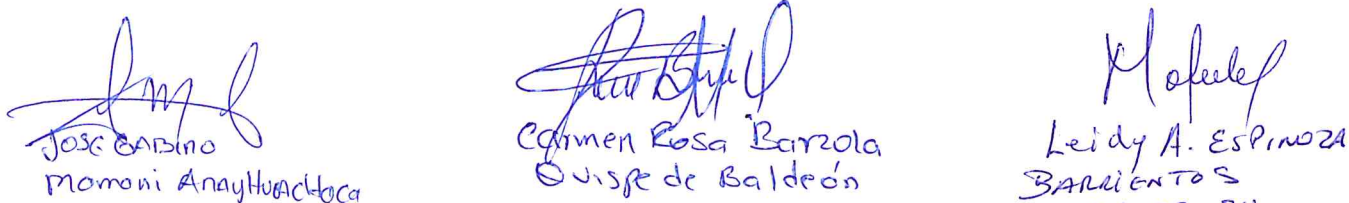 JOSE GABINO
Mamani AnayHuACHoca
Carmen Rosa Barzola
Quispe de Baldeón
Leidy A. ESPINOZA
BARRIENTOS